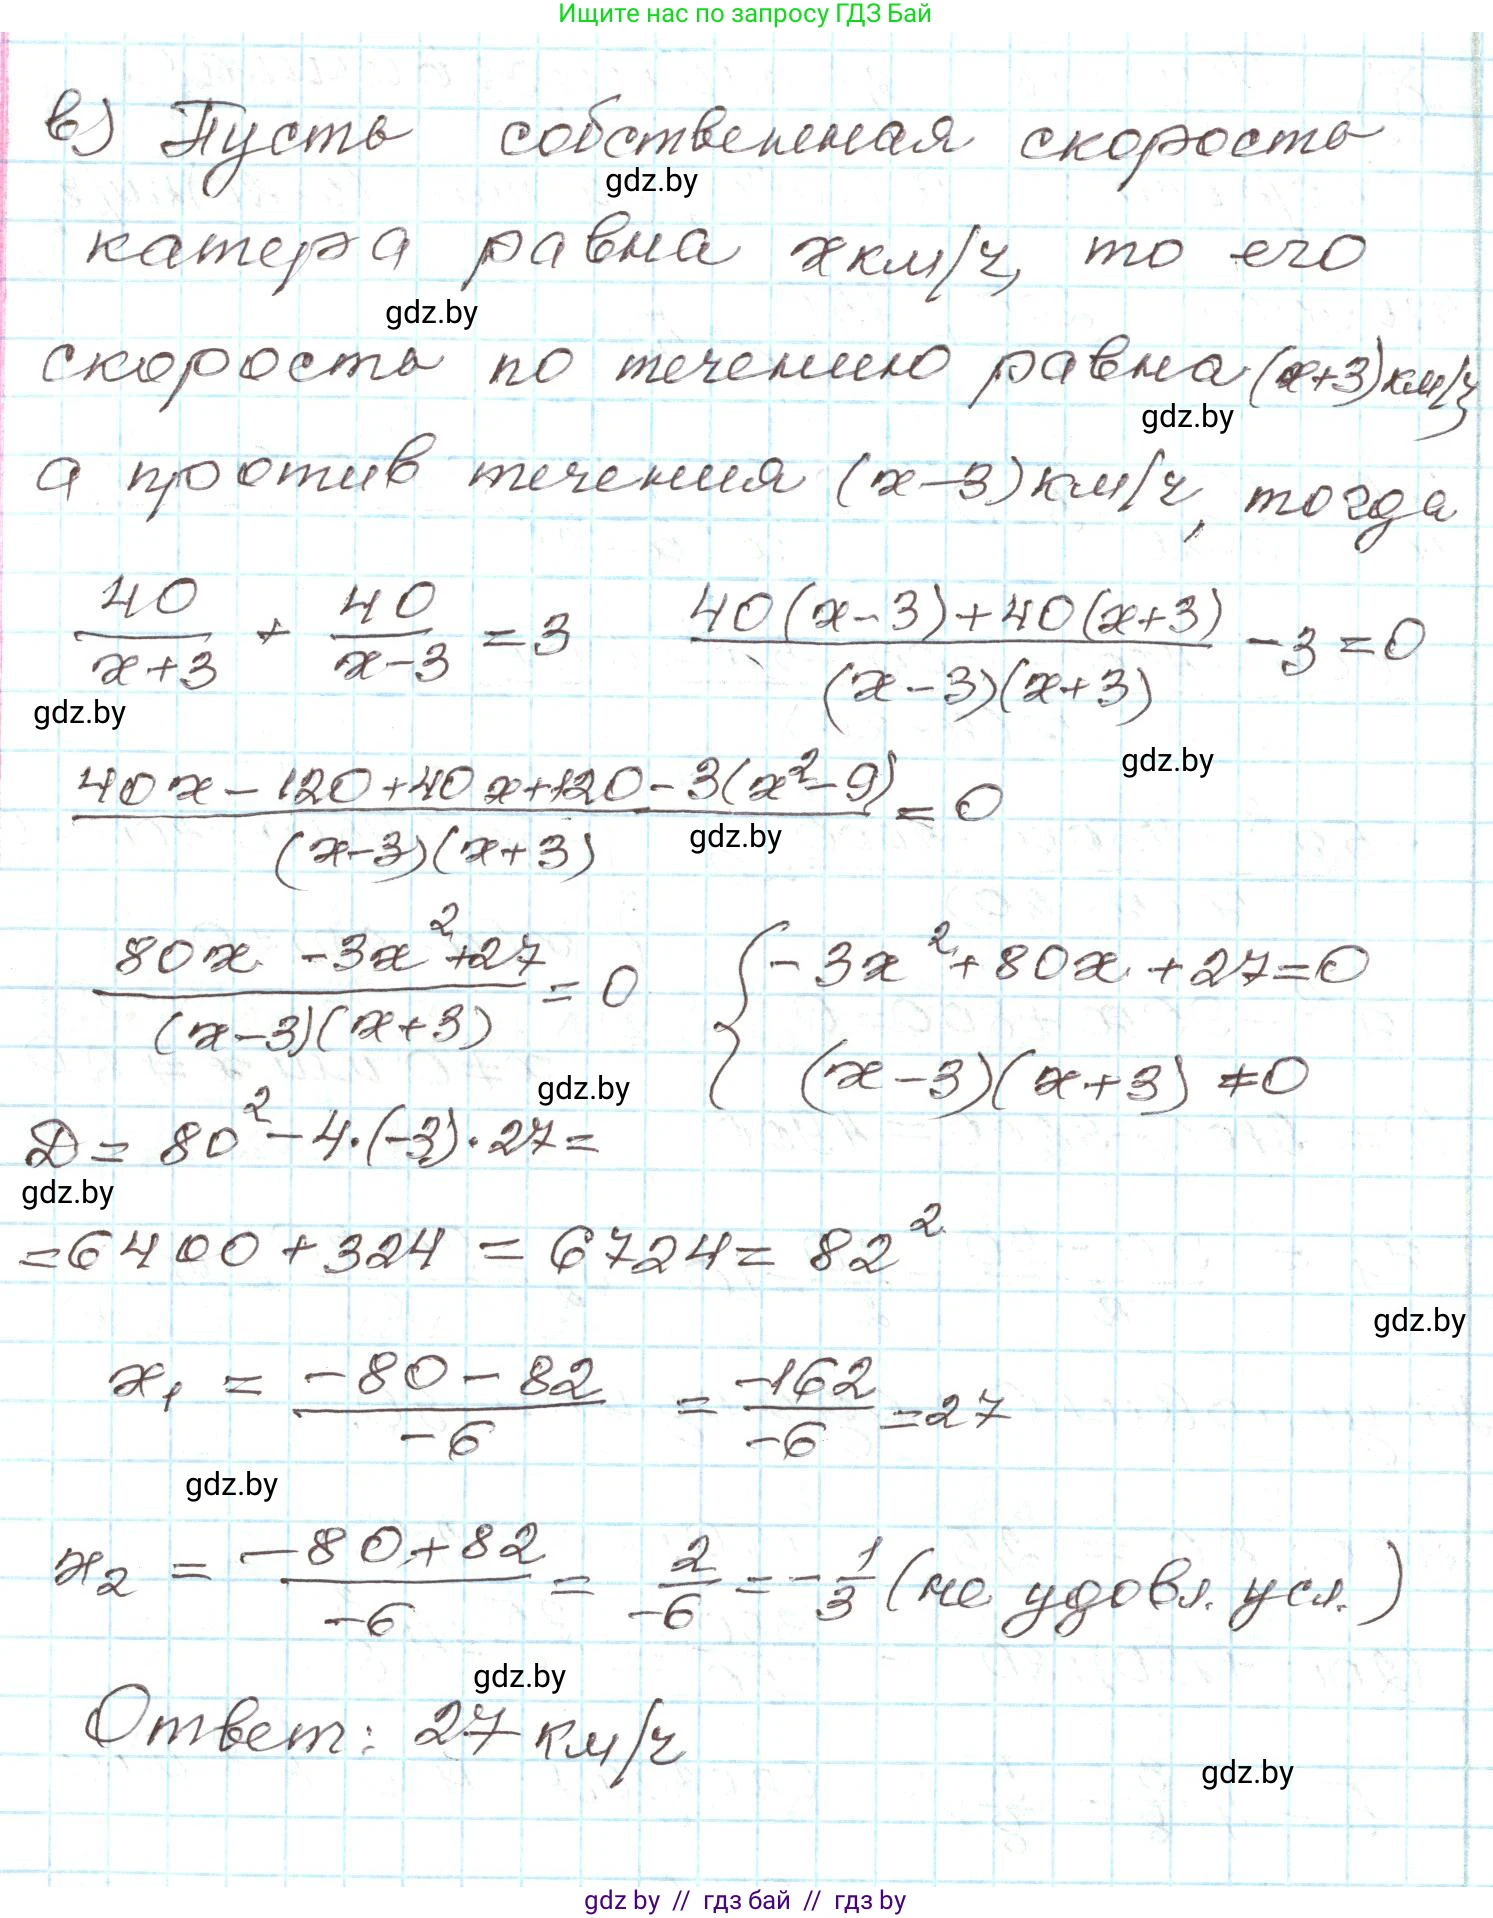 Ищите нас по запросу ГДЗ Бай
в) Пусть собственная скорость
gdz.by
катера равна x км/ч, то его
gdz.by
скорость по течению равна (x+3) км/ч,
gdz.by
а против течения (x-3) км/ч, тогда
40/(x+3) + 40/(x-3) = 3 (40(x-3)+40(x+3))/((x-3)(x+3)) - 3 = 0
gdz.by
gdz.by
(40x-120+40x+120-3(x²-9))/((x-3)(x+3)) = 0
gdz.by
(80x-3x²+27)/((x-3)(x+3)) = 0 { -3x²+80x+27=0
(x-3)(x+3) ≠ 0
gdz.by
D = 80² - 4·(-3)·27 =
gdz.by
= 6400 + 324 = 6724 = 82²
gdz.by
x₁ = (-80-82)/(-6) = (-162)/(-6) = 27
gdz.by
x₂ = (-80+82)/(-6) = 2/(-6) = -1/3 (не удовл. усл.)
gdz.by
Ответ: 27 км/ч
gdz.by
gdz by // гдз бай // гдз by